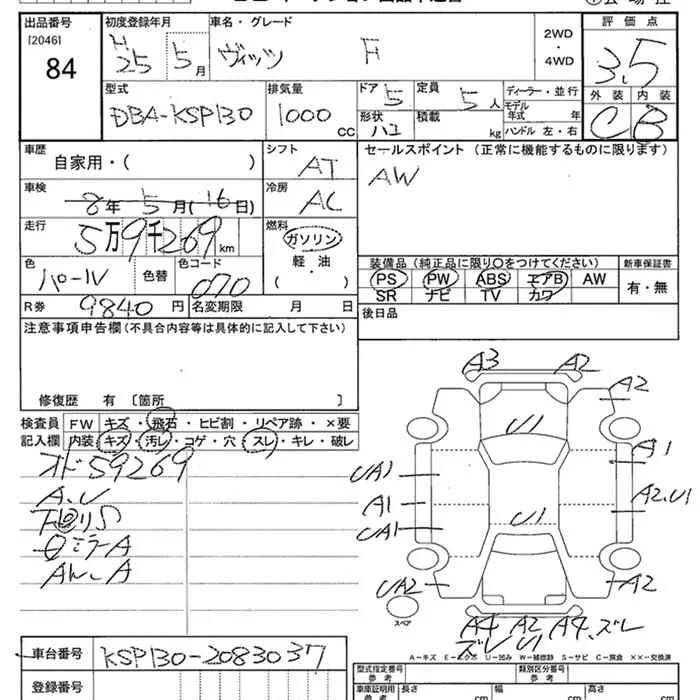 出品番号 初度登録年月 車名・グレード 評価点
[2046] H 25年 5月 ヴィッツ F 2WD・4WD 3.5
84
型式 排気量 ドア 5 定員 5人 ディーラー・並行 外装 内装
DBA-KSP130 1000 CC 形状 ハコ 積載 kg モデル年式 年 C B
ハンドル 左・右
車歴 シフト セールスポイント (正常に機能するものに限ります)
自家用・( ) AT AW
車検 冷房
8年 5月(16日) AC
走行 燃料
5万9千269km ガソリン
軽油
( )
装備品 (純正品に限り○をつけてください) 新車保証書
PS PW ABS エアB AW 有・無
SR ナビ TV カワ
色 色替 色コード
パール 070
R券 9840円 名変期限 月 日 後日品
注意事項申告欄(不具合内容等は具体的に記入して下さい)
修復歴 有 〔箇所 〕
検査員 FW キズ・飛石・ヒビ割・リペア跡・×要
記入欄 内装 キズ・汚レ・コゲ・穴・スレ・キレ・破レ
オド59269
A.U
A3 A2
A2
U1
UA1 A1
A1 A2.U1
UA1 U1
UA2 A2
スペア
A4 A2 A4.ズレ
ズレ U1
A-キズ E-エクボ U-凹み W-補修跡 S-サビ C-腐食 ××-交換済
車台番号 KSP130-2083037
登録番号
型式指定番号 参考 類別区分番号 参考
車庫証明用 参考 長さ cm 幅 cm 高さ cm